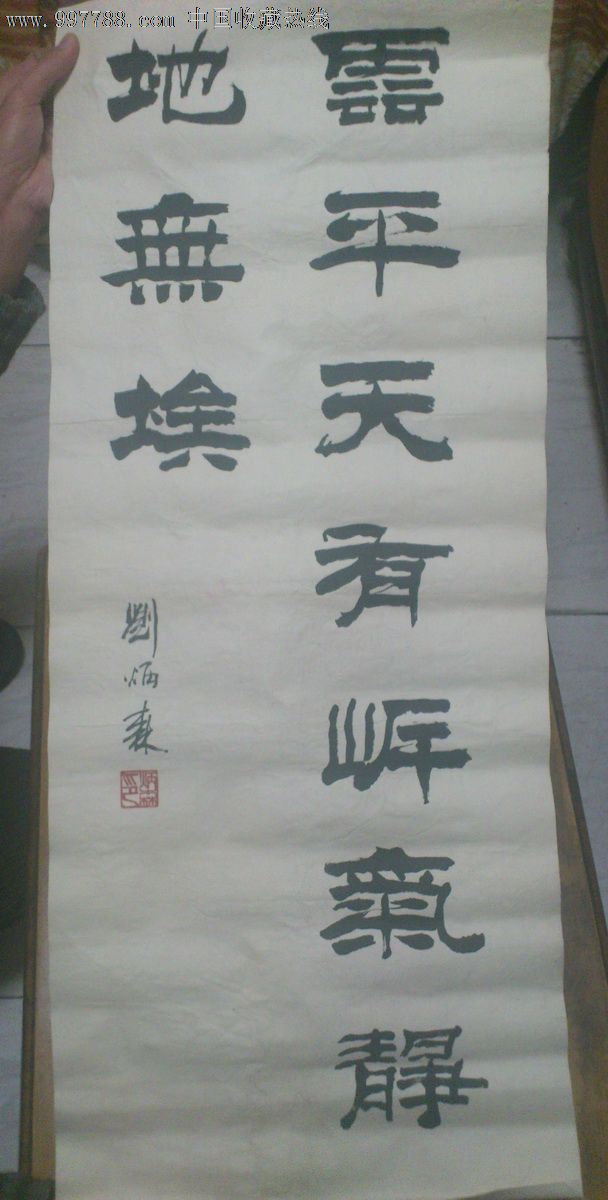 www.997788.com 中国收藏热线
雲平天有岸氣靜
地無埃
劉炳森